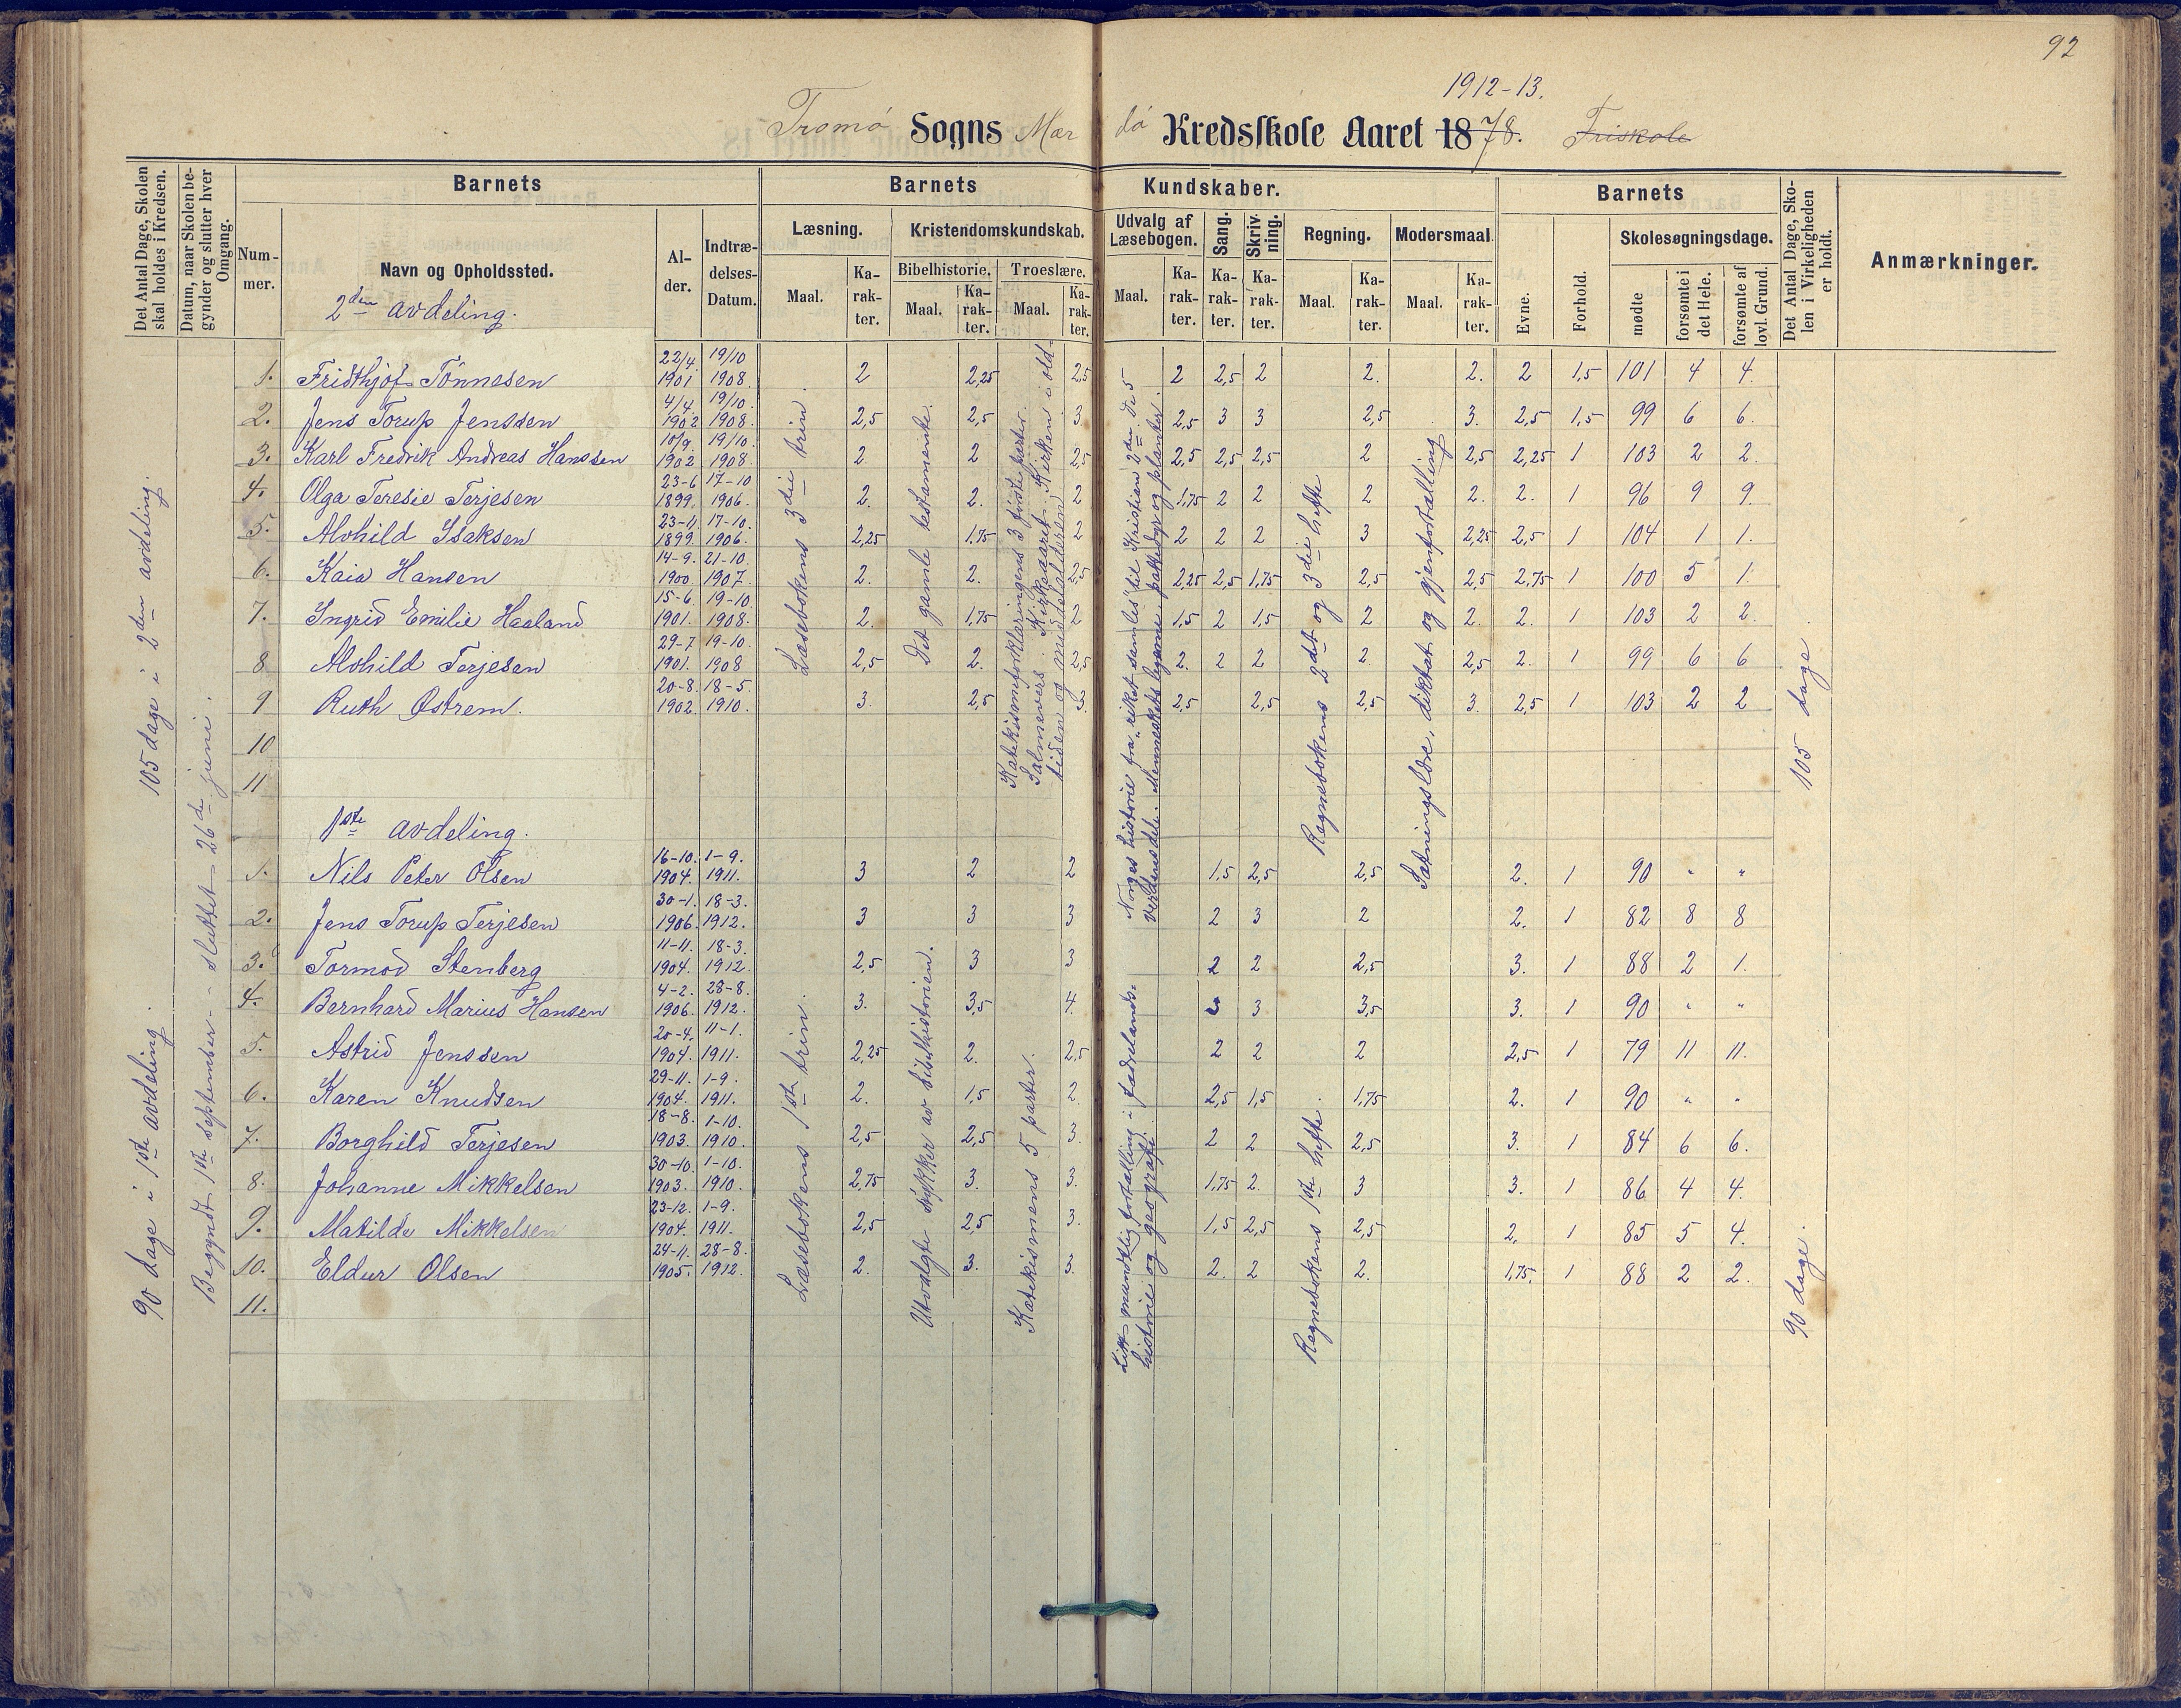 92
1912-13.
Tromø Sogns Mær dø Kredsskole Aaret 1878. Friskole
Det Antal Dage, Skolen skal holdes i Kredsen.
Datum, naar Skolen begynder og slutter hver Omgang.
Barnets
Barnets Kundskaber.
Barnets
Det Antal Dage, Skolen i Virkeligheden er holdt.
Anmærkninger.
Nummer.
Navn og Opholdssted.
Alder.
Indtrædelses-Datum.
Læsning.
Kristendomskundskab.
Udvalg af Læsebogen.
Sang.
Skrivning.
Regning.
Modersmaal.
Evne.
Forhold.
Skolesøgningsdage.
Bibelhistorie.
Troeslære.
Maal. Karakter. Maal. Karakter. Maal. Karakter. Maal. Karakter. Karakter. Karakter. Maal. Karakter. Maal. Karakter.
mødte
forsømte i det Hele.
forsømte af lovl. Grund.
2den avdeling.
105 dage i 2den avdeling.
90 dage i 1ste avdeling.
Begyndt 1ste september - sluttet 26de juni.
1. Fridthjof Tönnesen 22/4 1901 19/10 1908. 2 2,25 2,5 2 2,5 2 2. 2. 2 1,5 101 4 4.
2. Jens Torup Jenssen 4/4 1902 19/10 1908. 2,5 2,5 3. 2,5 3 3 2,5 3. 2,5 1,5 99 6 6.
3. Karl Fredrik Andreas Hanssen 10/9 1902 19/10 1908. 2 2 2,5 2,5 2,5 2,5 2 2,5 2,25 1 103 2 2.
4. Olga Teresie Terjesen 23-6 1899. 17-10 1906. 2. 2. 2 1,75 2 2 2 2. 2. 1 96 9 9.
5. Alvhild Isaksen 23-11 1899. 17-10. 1906. 2,25 1,75 2 2 2 2 3 2,25 2,5 1 104 1 1.
6. Kaia Hansen 14-9. 1900 21-10. 1907. 2. 2. 2,5 2,25 2,5 1,75 2,5 2,5 2,75 1 100 5 1.
7. Ingrid Emilie Haaland 15-6. 1901. 19-10. 1908. 2. 1,75 2 1,5 2 1,5 2 2. 2. 1 103 2 2.
8 Alvhild Terjesen 29-7 1901. 19-10. 1908 2,5 2. 2,5 2. 2 2 2 2,5 2. 1 99 6 6
9 Ruth Østrem. 20-8. 1902. 18-5. 1910. 3. 2,5 3. 2,5 2,5 2,5 3. 2,5 1 103 2 2
10
11
Læsebokens 3die trin
Det gamle testamente.
Katekismeforklaringens 3 første parter.
Salmevers. Kirkeaaret. Kirken i oldtiden og middelalderen.
Norges historie fra "riket samles" til Kristian 2den. De 5 verdensdele. Menneskets legeme, pattedyr og planter.
Regnebokens 2det og 3die hefte
Sætningslære, diktat og gjenfortælling
105 dage.
1ste avdeling.
1. Nils Peter Olsen 16-10. 1904. 1-9. 1911. 3 2 2 1,5 2,5 2,5 2. 1 90 " "
2. Jens Torup Terjesen 30-1. 1906. 18-3. 1912. 3 3 3 2 3 2 2. 1 82 8 8
3. Tormod Stenberg 11-11. 1904. 18-3. 1912. 2,5 3 3 2 2 2,5 3. 1 88 2 1.
4. Bernhard Marius Hansen 4-2. 1906. 28-8. 1912. 3. 3,5 4. 3 3,5 3. 1 90 " "
5. Astrid Jenssen 20-4. 1904. 11-1. 1911. 2,25 2. 2,5 2 2 2 2,5 1 79 11 11.
6. Karen Knudsen 29-11. 1904. 1-9. 1911. 2. 1,5 2. 2,5 1,5 1,75 2. 1 90 " "
7. Borghild Terjesen 18-8. 1903. 1-10. 1910. 2,5 2,5 3. 2 2 2,5 3. 1 84 6 6.
8. Johanne Mikkelsen 30-10. 1903. 1-10. 1910. 2,75 3. 3. 1,75 2. 3 3. 1 86 4 4.
9. Matilde Mikkelsen 23-12. 1904. 1-9. 1911. 2,5 2,5 3. 1,5 2,5 2,5 2. 1 85 5 4.
10. Eldur Olsen 24-11. 1905. 28-8. 1912. 2. 3. 3. 2. 2 2. 1,75. 1 88 2 2.
11.
Læsebokens 1ste trin.
Utvalgte stykker av bibelhistorien.
Katekismens 5 parter.
Litt mundtlig fortælling i fædrelandshistorie og geografi.
Regnebokens 1ste hefte.
90 dage.